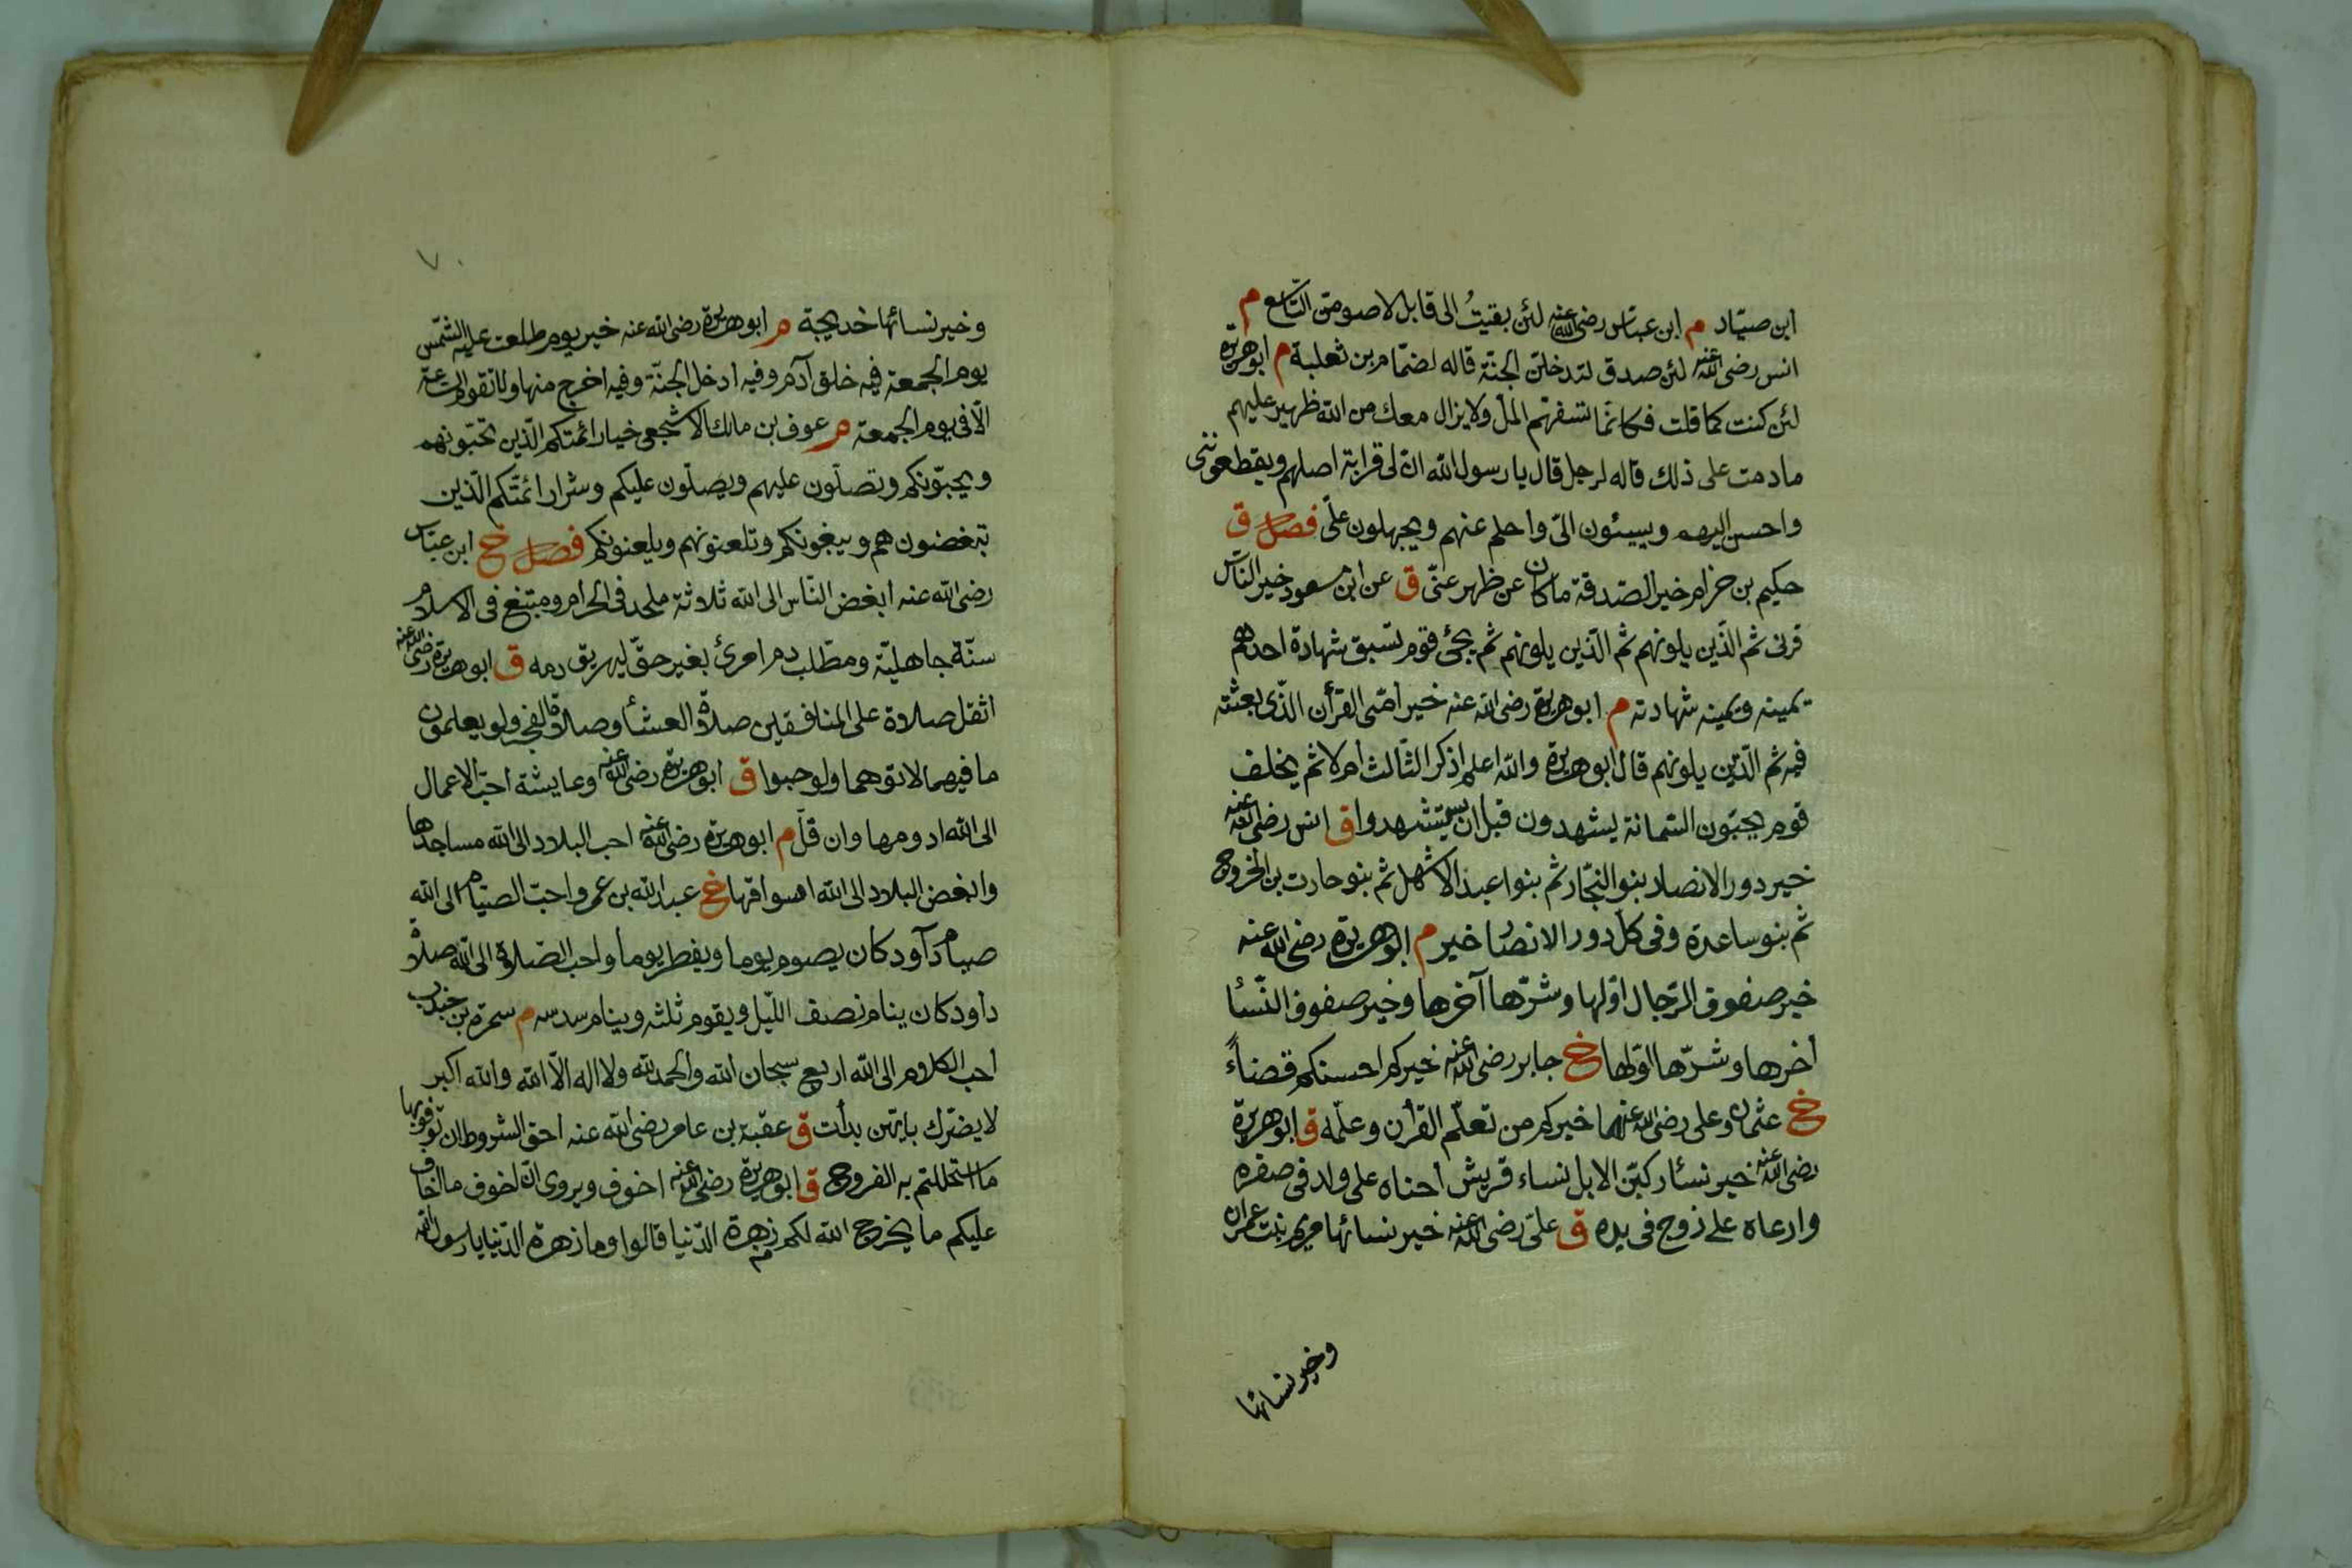 ابن صياد م ابن عباس رضى الله عنه لئن بقيتُ الى قابل لاصومن التاسع م
انس رضى الله عنه لئن صدق لتدخلن الجنة قاله لضمام بن ثعلبة م ابو هريرة
لئن كنت كما قلت فكانّما تسفهم الملّ ولا يزال معك من الله ظهير عليهم
ما دمت على ذلك قاله لرجل قال يا رسول الله انّ لى قرابة اصلهم ويقطعوننى
واحسن اليهم ويسيئون الىّ واحلم عنهم ويجهلون علىّ فصل ق
حكيم بن حزام خير الصّدقة ما كان عن ظهر عنّى ق عن ابن مسعود خير الناس
قرنى ثم الّذين يلونهم ثم الّذين يلونهم ثم يجئ قوم تسبق شهادة احدهم
يمينه ويمينه شهادته م ابو هريرة رضى الله عنه خير أمّتى القرأن الّذى بعثته
فيه ثم الّذين يلونهم قال ابو هريرة والله اعلم اذكر الثالث ام لا ثم يخلف
قوم يحبّون السّمانة يشهدون قبل ان يستشهدوا ق انس رضى الله عنه
خير دور الانصار بنو النجّار ثم بنوا عبد الاشهل ثم بنو حارث بن الخزرج
ثم بنو ساعدة وفى كل دور الانصار خير م ابو هريرة رضى الله عنه
خير صفوف الرّجال اوّلها وشرّها آخرها وخير صفوف النّسأ
أخرها وشرّها اوّلها خ جابر رضى الله عنه خيركم احسنكم قضاءً
خ عثمان وعلى رضى الله عنهما خيركم من تعلّم القرأن وعلّمه ق ابو هريرة
رضى الله عنه خير نسأ ركبن الابل نساء قريش أحناه على ولد فى صغره
وارعاه على زوج فى يده ق علىّ رضى الله عنه خير نسائها مريم بنت عمران
وخير نسائها
٧٠
وخير نسائها خديجة م ابو هريرة رضى الله عنه خير يوم طلعت عليه الشمس
يوم الجمعة فيه خلق آدم وفيه ادخل الجنّة وفيه اخرج منها ولا تقوم الساعة
الّا فى يوم الجمعة م عوف بن مالك الاشجعى خيار ائمتكم الّذين تحبّونهم
ويحبّونكم وتصلّون عليهم ويصلّون عليكم وشرار ائمّتكم الّذين
تبغضونهم ويبغونكم وتلعنونهم ويلعنونكم فصل خ ابن عبّاس
رضى الله عنه ابغض النّاس الى الله ثلاثة ملحد فى الحرام ومبتغ فى الاسلام
سنّة جاهليّة ومطّلب دم امرئ بغير حقّ ليهريق دمه ق ابو هريرة رضى الله عنه
اثقل صلاة على المنافقين صلاة العشأ وصلاة الفجر ولو يعلمون
ما فيهما لاتوهما ولو حبوا ق ابو هريرة رضى الله عنه وعايشة احبّ الاعمال
الى الله ادومها وان قلّ م ابو هريرة رضى الله عنه احب البلاد الى الله مساجدها
وابغض البلاد الى الله اسواقها خ عبد الله بن عمرو احبّ الصيام الى الله
صيام دآود كان يصوم يوما ويفطر يوما واحب الصّلاة الى الله صلاة
داود كان ينام نصف اللّيل ويقوم ثلثه وينام سدسه م سمرة بن جندب
أحب الكلام الى الله اربع سبحان الله والحمد لله ولا اله الّا الله والله اكبر
لا يضرّك بايّهن بدأت ق عقبة بن عامر رضى الله عنه احق الشروط ان توفوا بها
ما استحللتم به الفروج ق ابو هريرة رضى الله عنه اخوف ويروى انّ اخوف ما اخاف
عليكم ما يخرج الله لكم زهرة الدّنيا قالوا وما زهرة الدّنيا يا رسول الله